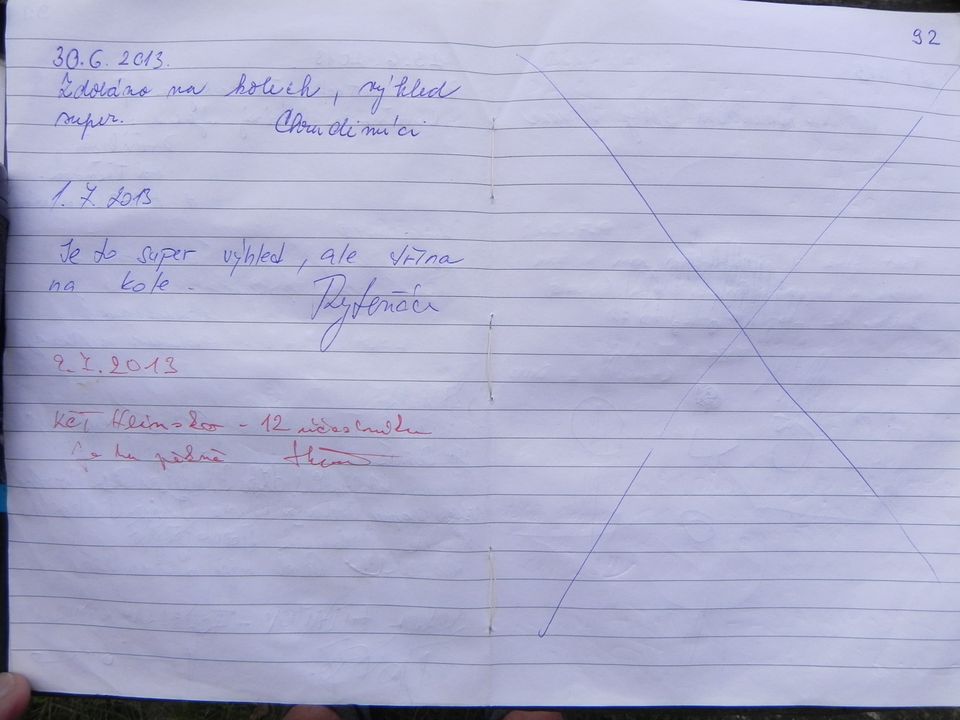 30.6. 2013.
Zdoláno na kolech, výhled
super. Chrudimáci
1. 7. 2013
Je to super výhled, ale dřina
na kole.
2.7.2013
KČT Hlinsko - 12 účastníků
Je tu pěkně
92